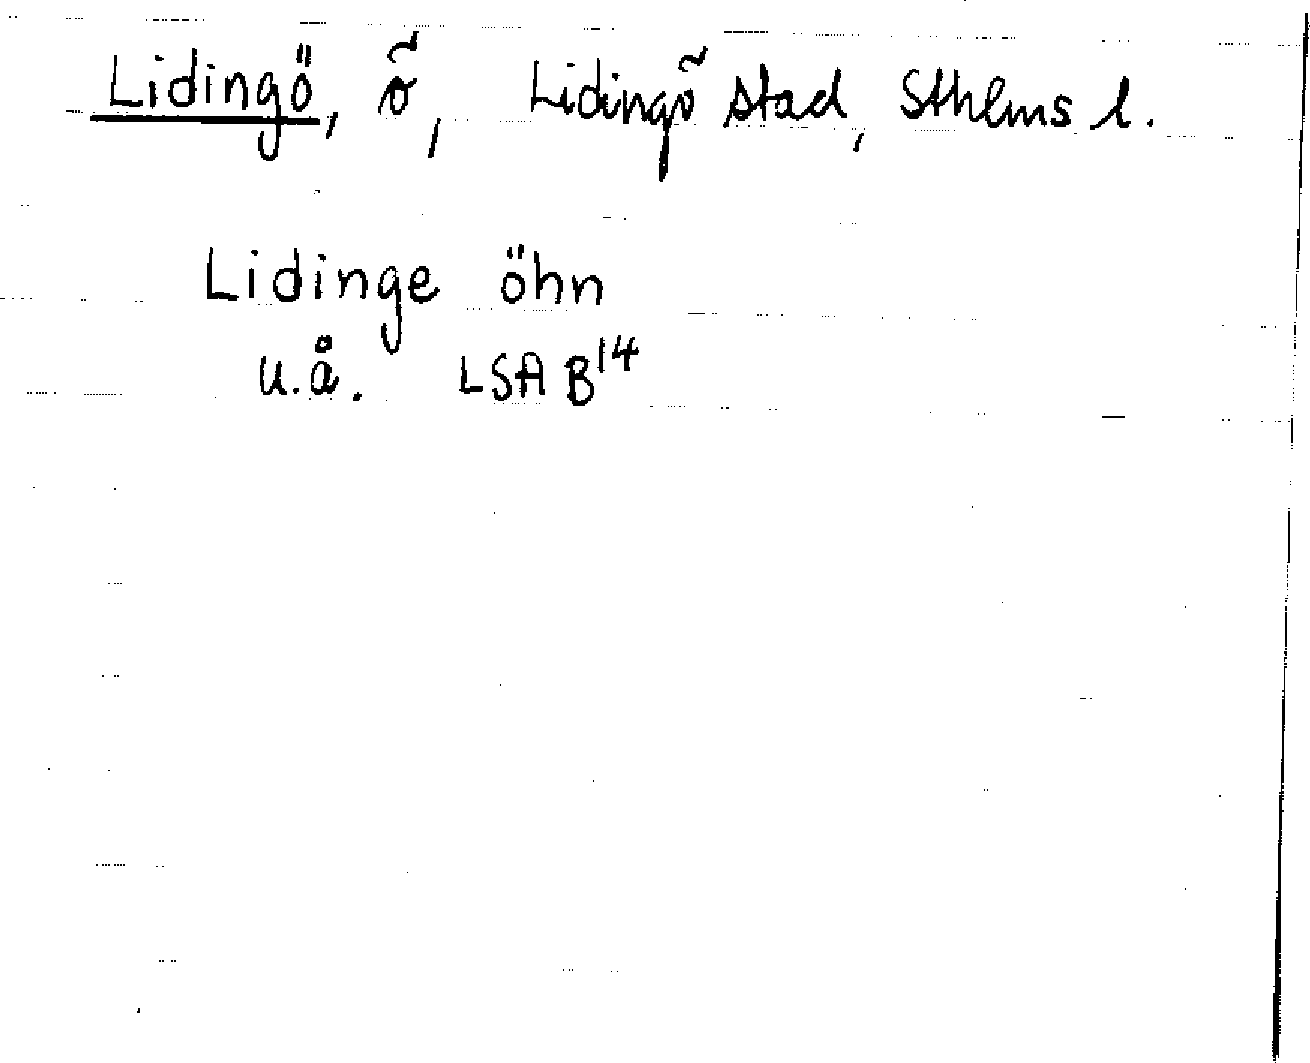 Lidingö, ö, Lidingö stad, Sthlms l.
Lidinge öhn
u.å. LSA B14